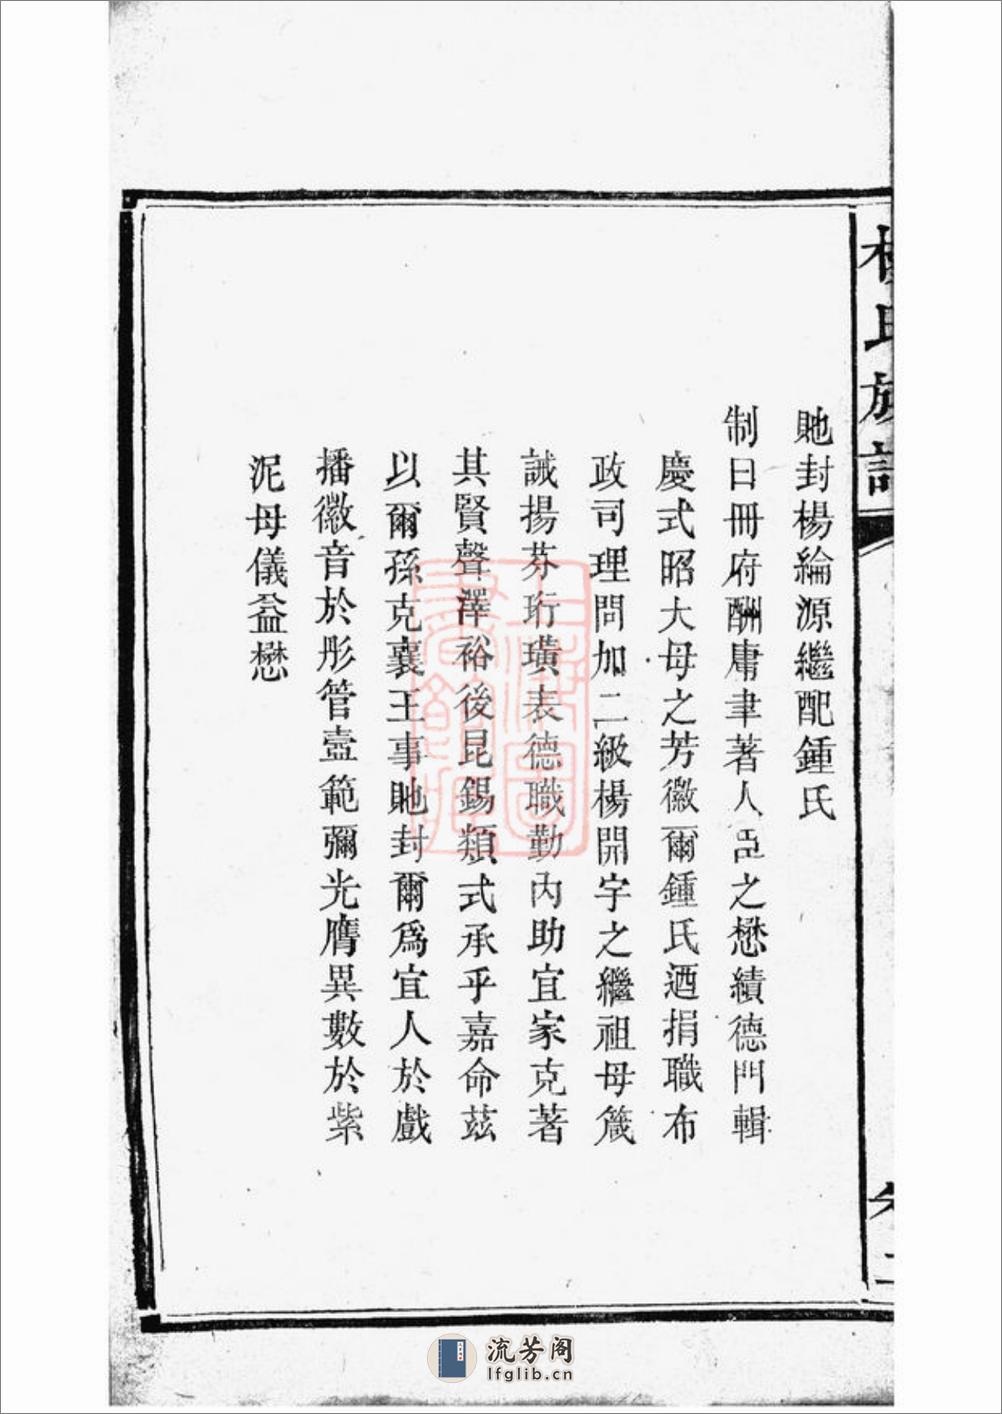 楊氏族譜
卷二
貤封楊綸源繼配鍾氏
制曰冊府酬庸聿著人臣之懋績德門輯
慶式昭大母之芳徽爾鍾氏迺捐職布
政司理問加二級楊開字之繼祖母箴
誡揚芬珩璜表德職勤內助宜家克著
其賢聲澤裕後昆錫類式承乎嘉命茲
以爾孫克襄王事貤封爾為宜人於戲
播徽音於彤管壼範彌光膺異數於紫
泥母儀益懋
流芳阁
lfglib.cn